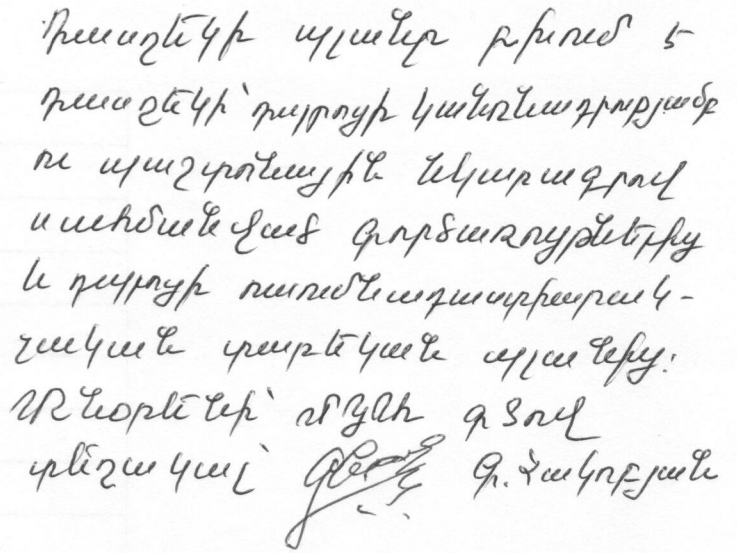 Դասղեկի պլանը բխում է
դասղեկի՝ դպրոցի կանոնադրությամբ
ու պաշտոնային նկարագրով
սահմանված գործառույթներից
և դպրոցի ուսումնադաստիարակ-
չական տարեկան պլանից:
Տնօրենի՝ ՈՒԴԱ գծով
տեղակալ՝ Գ. Հակոբյան